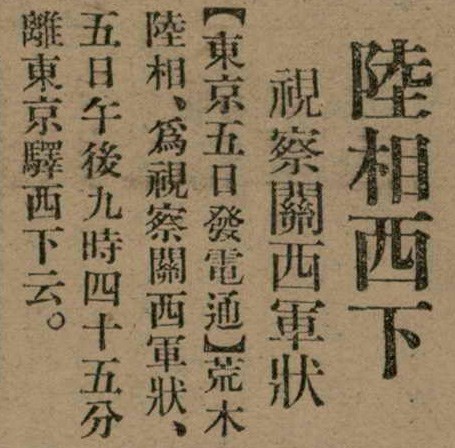 陸相西下
視察關西軍狀
【東京五日發電通】荒木
陸相、爲視察關西軍狀、
五日午後九時四十五分
離東京驛西下云。